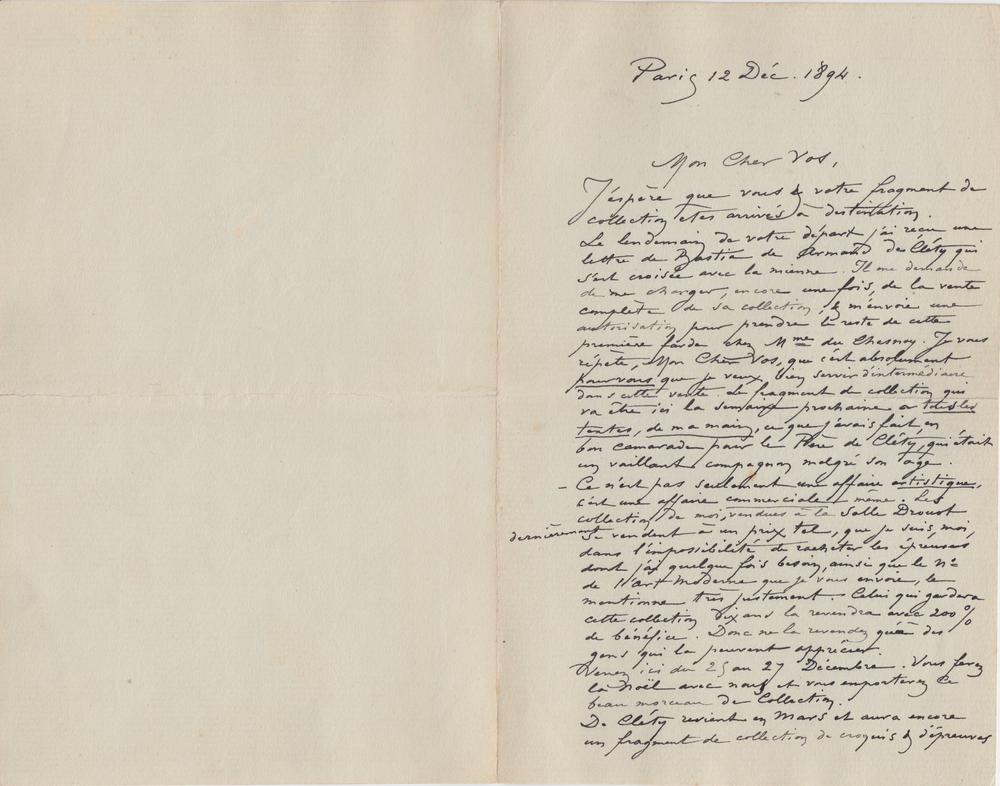 Paris 12 Déc. 1894.
Mon Cher Vos,
J'espère que vous & votre fragment de
collection êtes arrivés à destination.
Le lendemain de votre départ j'ai reçu une
lettre de Bastia de Armand de Cléty qui
s'est croisée avec la mienne. Il me demande
de me charger, encore une fois, de la vente
complète de sa collection, & m'envoie une
autorisation pour prendre le reste de cette
première farde chez Mme du Chesnoy. Je vous
répète, Mon Cher Vos, que c'est absolument
pour vous que je veux bien servir d'intermédiaire
dans cette vente. Le fragment de collection qui
va être ici la semaine prochaine a tous les
textes, de ma main, ce que j'avais fait, en
bon camarade pour le Père de Cléty, qui était
un vaillant compagnon malgré son âge.
– Ce n'est pas seulement une affaire artistique,
c'est une affaire commerciale même. Les
collection de moi, vendues à la Salle Drouot
dernièrement se vendent à un prix tel, que je suis, moi,
dans l'impossibilité de racheter les épreuves
dont j'ai quelque fois besoin, ainsi que le no
de l'Art Moderne que je vous envoie, le
mentionne très justement. Celui qui gardera
cette collection dix ans la revendra avec 200 %
de bénéfice. Donc ne la revendez qu'à des
gens qui la peuvent apprécier.
Venez ici du 25 au 27 Décembre. Vous ferez
la Noël avec nous et vous emporterez ce
beau morceau de Collection.
De Cléty revient en Mars et aura encore
un fragment de collection de croquis & d'épreuves